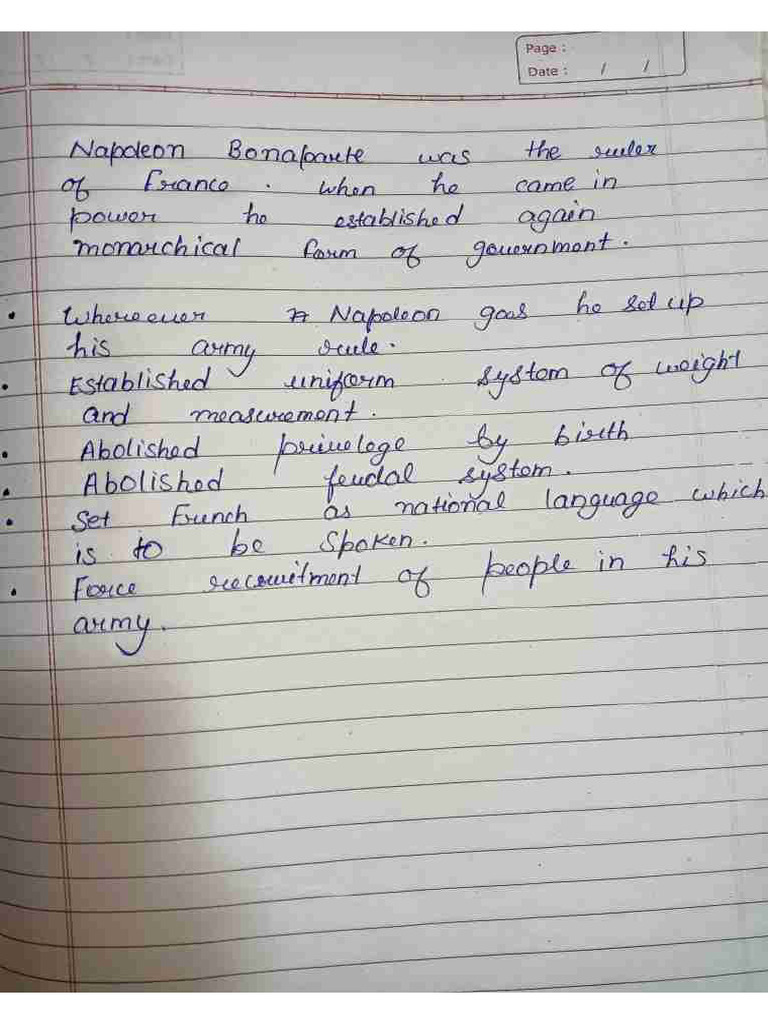 Page :
Date : / /
Napoleon Bonaparte was the ruler
of France. when he came in
power he established again
monarchical form of government.
• Whereever Napoleon goes he set up
his army rule.
• Established uniform system of weight
and measurement.
• Abolished privelege by birth
• Abolished feudal system.
• Set French as national language which
is to be spoken.
• Force recruitment of people in his
army.